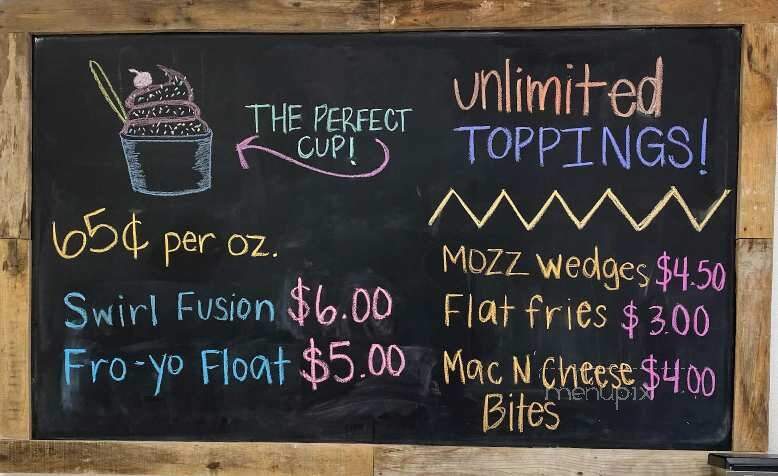 THE PERFECT
CUP!
65¢ per oz.
Swirl Fusion $6.00
Fro-yo Float $5.00
unlimited
TOPPINGS!
Mozz wedges $4.50
Flat fries $3.00
Mac N Cheese $4.00
Bites
menupix